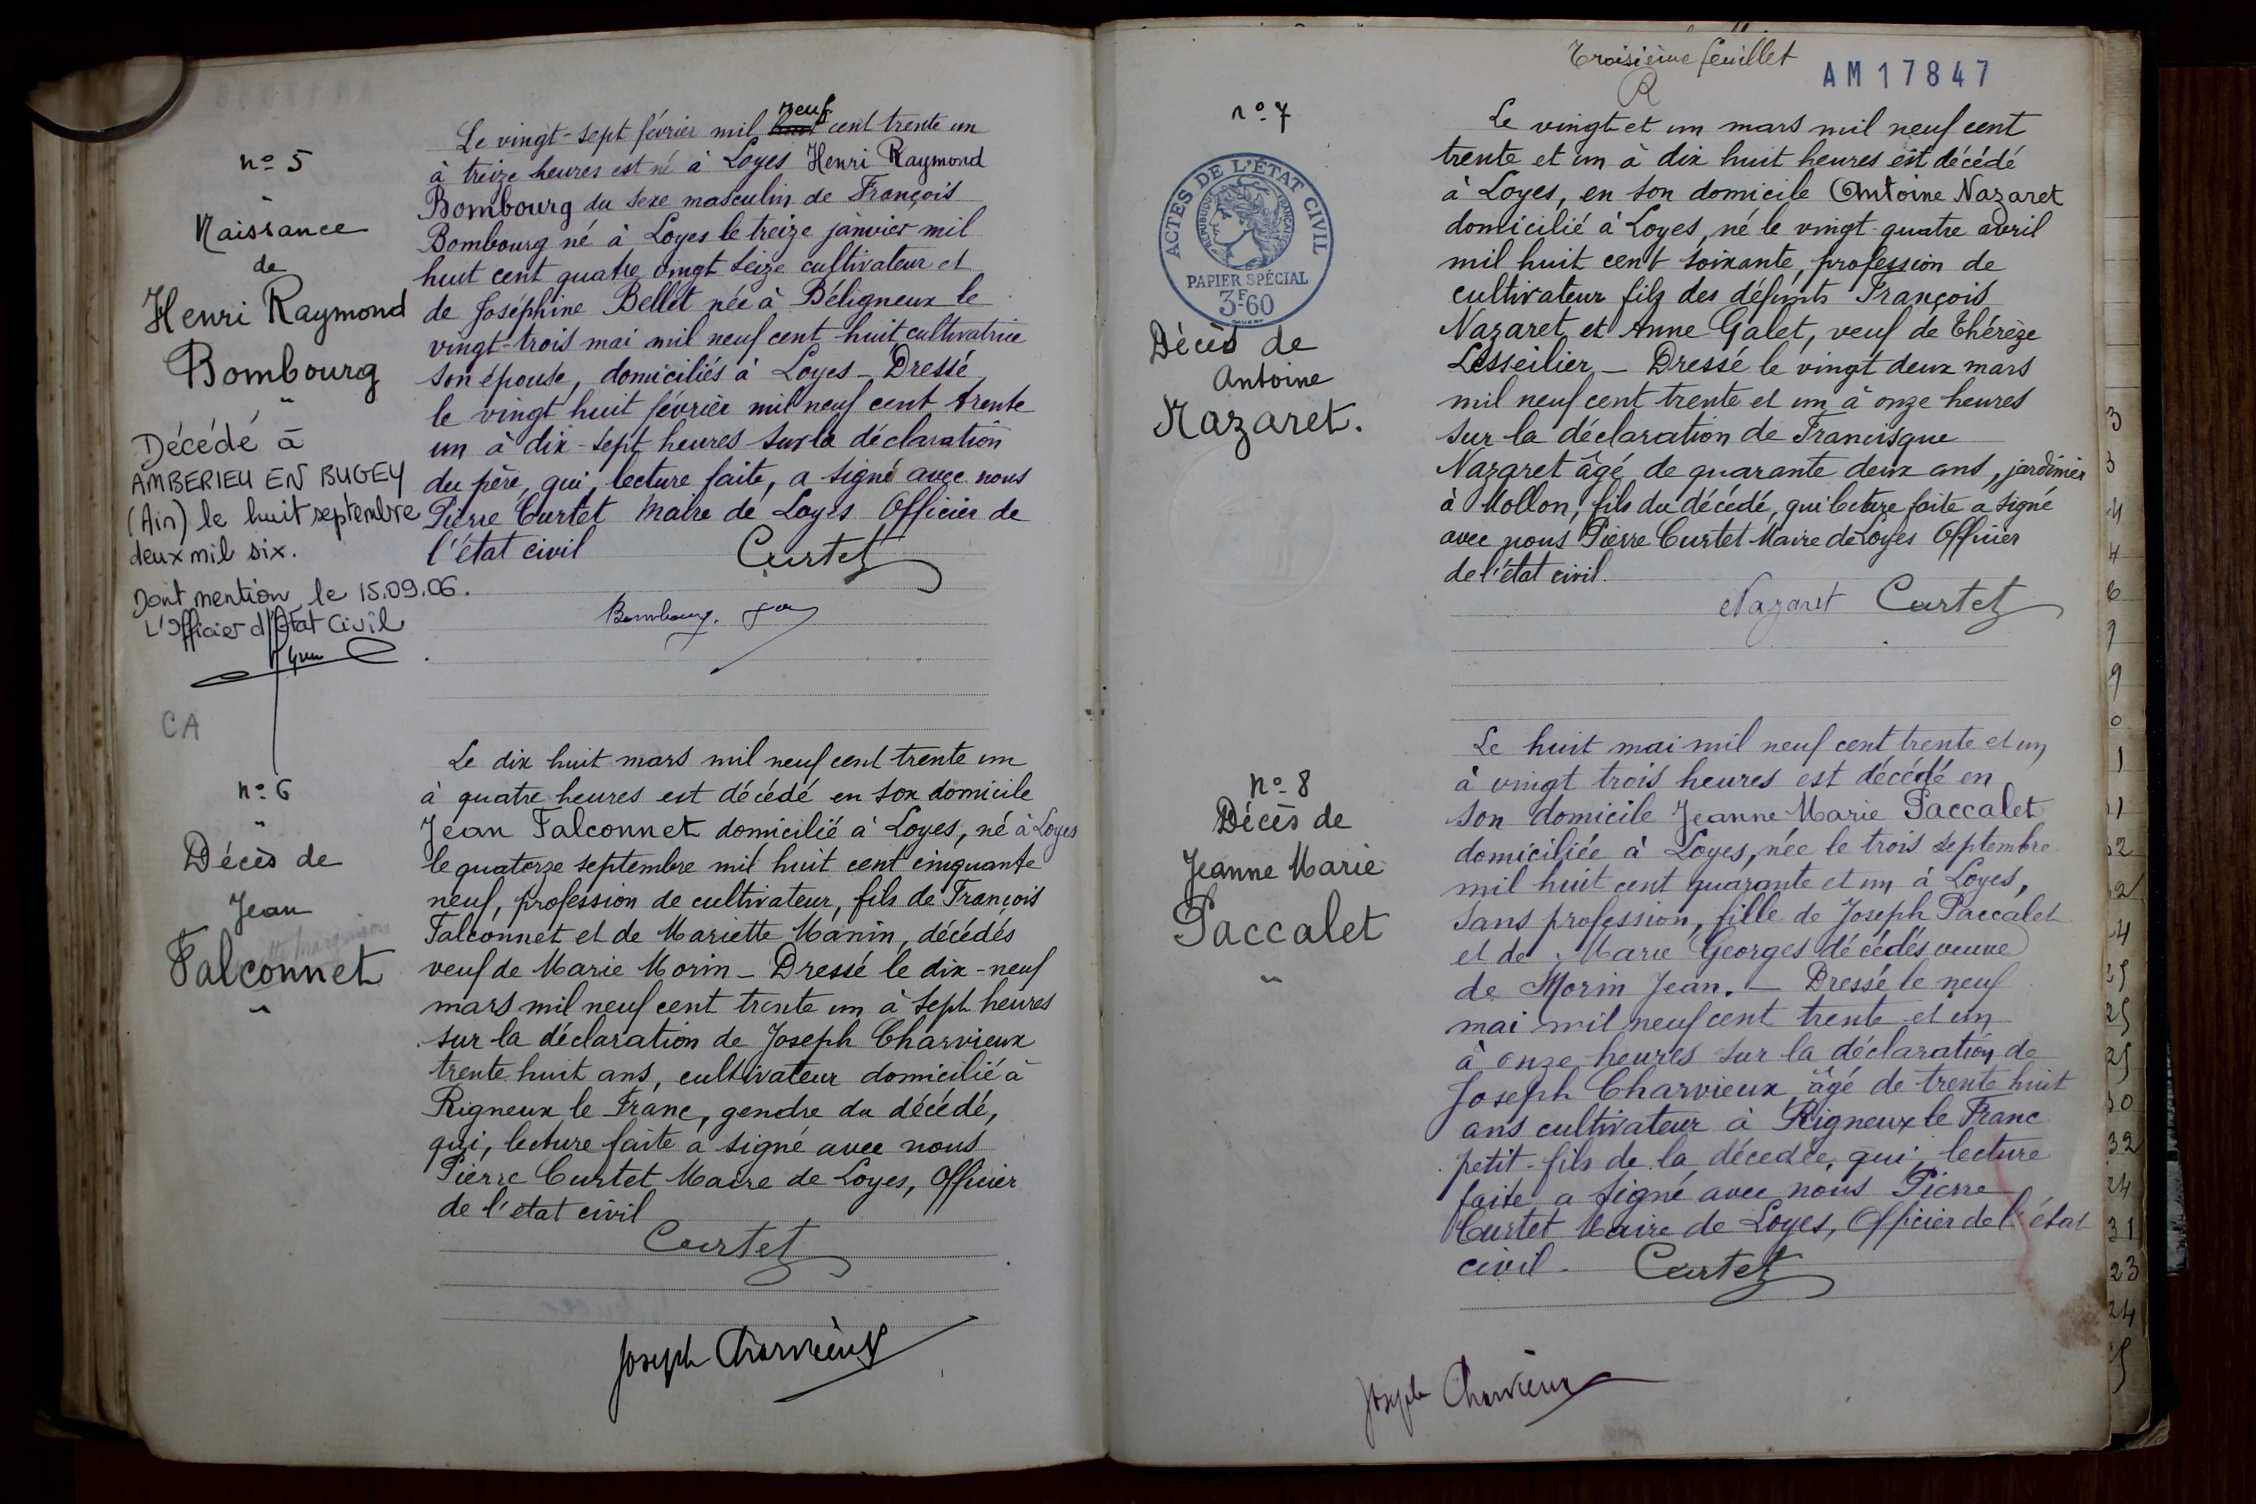 n° 5
Naissance
de
Henri Raymond
Bombourg
Décédé à
AMBERIEU EN BUGEY
(Ain) le huit septembre
deux mil six.
Dont mention, le 15.09.06.
L'Officier d'Etat Civil
CA
Le vingt-sept février mil neuf cent trente un
à treize heures est né à Loyes Henri Raymond
Bombourg du sexe masculin de François
Bombourg né à Loyes le treize janvier mil
huit cent quatre vingt seize cultivateur et
de Joséphine Bellet née à Béligneux le
vingt-trois mai mil neuf cent huit cultivatrice
son épouse, domiciliés à Loyes - Dressé
le vingt huit février mil neuf cent trente
un à dix-sept heures sur la déclaration
du père, qui, lecture faite, a signé avec nous
Pierre Curtet Maire de Loyes Officier de
l'état civil
Curtet
Bombourg.
n° 6
Décès de
Jean
Falconnet
Le dix huit mars mil neuf cent trente un
à quatre heures est décédé en son domicile
Jean Falconnet domicilié à Loyes, né à Loyes
le quatorze septembre mil huit cent cinquante
neuf, profession de cultivateur, fils de François
Falconnet et de Mariette Manin, décédés
veuf de Marie Morin - Dressé le dix-neuf
mars mil neuf cent trente un à sept heures
sur la déclaration de Joseph Charvieux
trente huit ans, cultivateur domicilié à
Rigneux le Franc, gendre du décédé,
qui, lecture faite a signé avec nous
Pierre Curtet Maire de Loyes, Officier
de l'état civil
Curtet
Joseph Charvieux
Troisième feuillet
AM17847
n° 7
ACTES DE L'ÉTAT CIVIL
REPUBLIQUE FRANÇAISE
PAPIER SPÉCIAL
3F60
Décès de
Antoine
Nazaret.
Le vingt et un mars mil neuf cent
trente et un à dix huit heures est décédé
à Loyes, en son domicile Antoine Nazaret
domicilié à Loyes, né le vingt-quatre avril
mil huit cent soixante, profession de
cultivateur fils des défunts François
Nazaret et Anne Galet, veuf de Thérèze
Lesseilier - Dressé le vingt deux mars
mil neuf cent trente et un à onze heures
sur la déclaration de Francisque
Nazaret âgé de quarante deux ans, jardinier
à Mollon, fils du décédé, qui lecture faite a signé
avec nous Pierre Curtet Maire de Loyes Officier
de l'état civil.
Nazaret Curtet
n° 8
Décès de
Jeanne Marie
Paccalet
Le huit mai mil neuf cent trente et un
à vingt trois heures est décédé en
son domicile Jeanne Marie Paccalet
domiciliée à Loyes, née le trois septembre
mil huit cent quarante et un à Loyes,
sans profession, fille de Joseph Paccalet
et de Marie Georges décédés veuve
de Morin Jean. - Dressé le neuf
mai mil neuf cent trente et un
à onze heures sur la déclaration de
Joseph Charvieux âgé de trente huit
ans cultivateur à Rigneux le Franc
petit-fils de la décedée, qui, lecture
faite a signé avec nous Pierre
Curtet Maire de Loyes, Officier de l'état
civil. Curtet
Joseph Charvieux